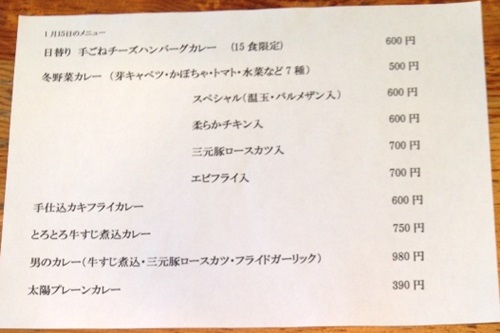 1月15日のメニュー
日替り 手ごねチーズハンバーグカレー (15食限定) 600円
冬野菜カレー (芽キャベツ・かぼちゃ・トマト・水菜など7種) 500円
スペシャル(温玉・パルメザン入) 600円
柔らかチキン入 600円
三元豚ロースカツ入 700円
エビフライ入 700円
手仕込カキフライカレー 600円
とろとろ牛すじ煮込カレー 750円
男のカレー(牛すじ煮込・三元豚ロースカツ・フライドガーリック) 980円
太陽プレーンカレー 390円